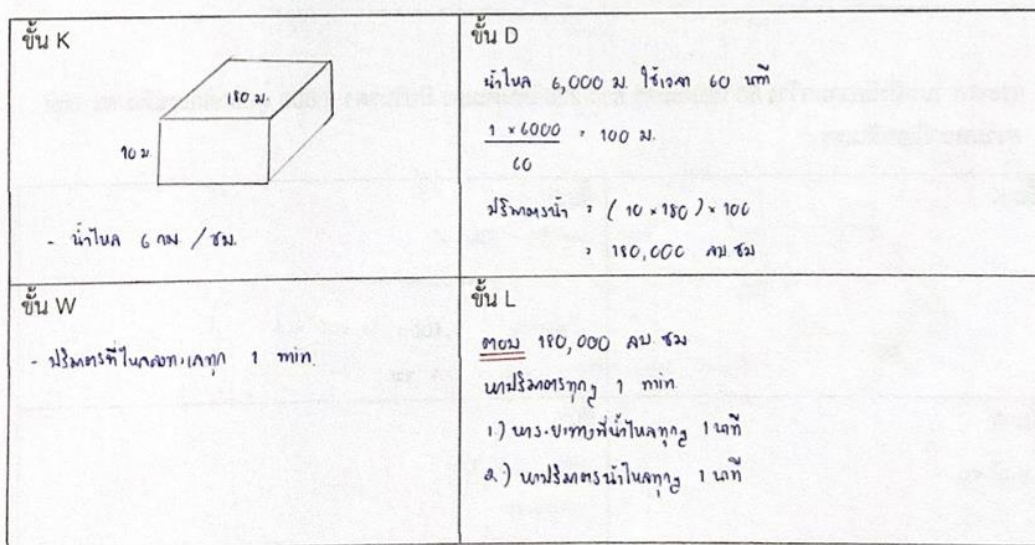 ขั้น K
180 ม.
10 ม.
- น้ำไหล 6 กม / ชม.
ขั้น D
น้ำไหล 6,000 ม ใช้เวลา 60 นาที
1 × 6000 = 100 ม.
60
ปริมาตรน้ำ = (10 × 180) × 100
= 180,000 ลบ ซม
ขั้น W
- ปริมาตรที่ไหลลงทะเลทุก 1 min.
ขั้น L
ตอบ 180,000 ลบ ซม
หาปริมาตรทุกๆ 1 min
1.) หาระยะทางที่น้ำไหลทุกๆ 1 นาที
2.) หาปริมาตรน้ำไหลทุกๆ 1 นาที